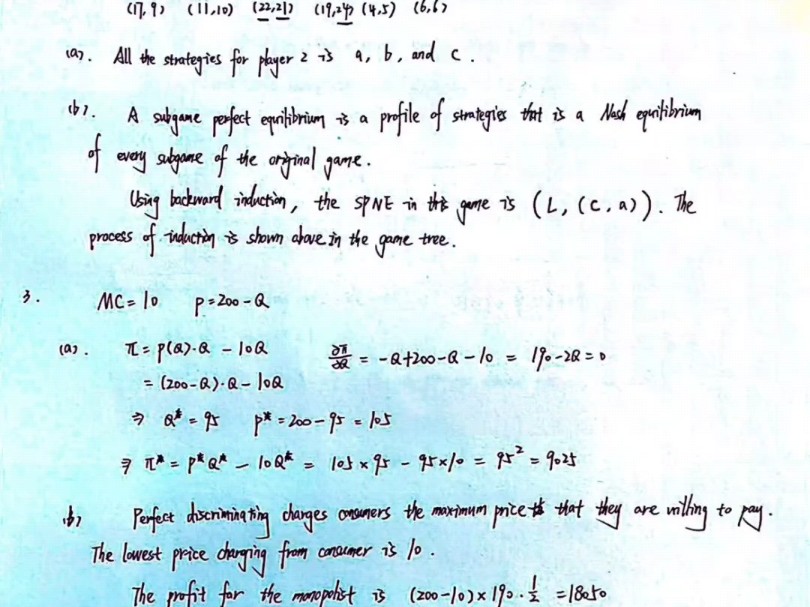 (17,9) (11,10) (22,21) (19,24) (4,5) (6,6)
(a). All the strategies for player 2 is a, b, and c.
(b). A subgame perfect equilibrium is a profile of strategies that is a Nash equilibrium
of every subgame of the original game.
Using backward induction, the SPNE in this game is (L, (c, a)). The
process of induction is shown above in the game tree.
3. MC = 10 p = 200 - Q
(a). π = p(Q)·Q - 10Q ∂π/∂Q = -Q+200-Q-10 = 190-2Q = 0
= (200-Q)·Q - 10Q
⇒ Q* = 95 p* = 200-95 = 105
⇒ π* = p*Q* - 10Q* = 105×95 - 95×10 = 95² = 9025
(b) Perfect discriminating charges consumers the maximum price that they are willing to pay.
The lowest price charging from consumer is 10.
The profit for the monopolist is (200-10)×190·1/2 = 18050